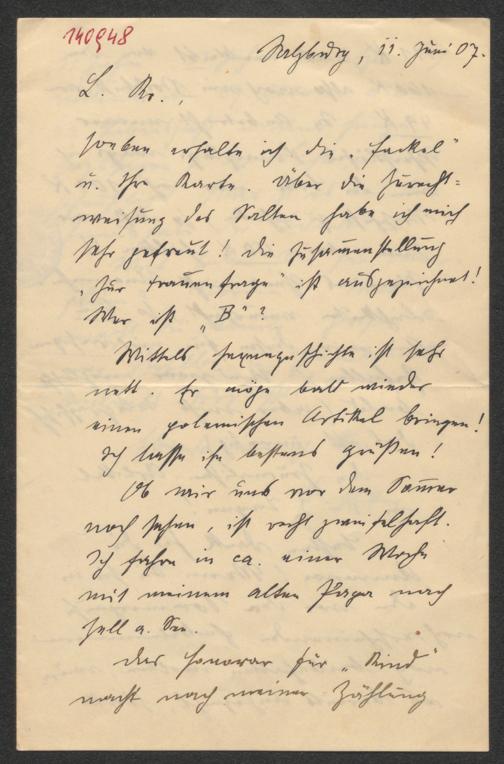 140948
Salzburg, 11. Juni 07.
L. Kr.,
soeben erhalte ich die „Fackel“
u. Ihre Karte. Über die Zurecht=
weisung des Salten habe ich mich
sehr gefreut! Die Zusammenstellung
„Zur Frauenfrage“ ist ausgezeichnet!
Wer ist „B“?
Wittels ist sehr
nett. Er möge bald wieder
einen polemischen Artikel bringen!
Ich lasse ihn bestens grüßen!
Ob wir uns vor dem Sommer
noch sehen, ist recht zweifelhaft.
Ich fahre in ca. einer Woche
mit meinem alten Papa nach
Zell a. See.
Das Honorar für „Kind“
macht nach meiner Zählung